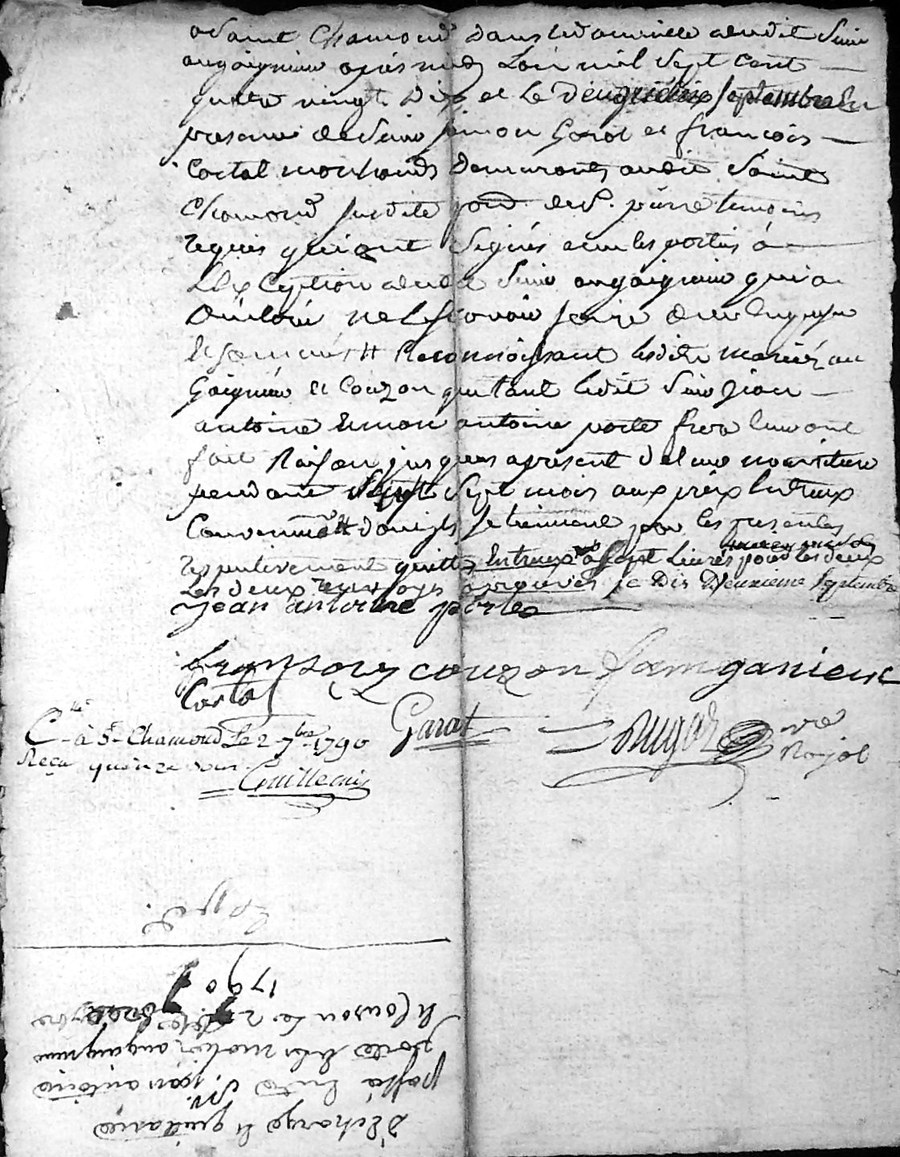 a Saint Chamond dans le domicille dudit Sieur
angaignieur après midy L'an mil Sept Cent
quatre vingt Dix et Le deuxieme Septembre En
presence de Sieur Simon Garat et françois
Costal marchands Demeurants audit Saint
Chamond susdite de St. pierre temoins
requis qui ont Signés avec les parties à
L'exception dudit Sieur angaignieur qui a
Déclaré ne le scavoir faire de ce Enquis
et Sommés Reconnoissant lesdits mariés an
gaignieur et Couzon que tant ledit Sieur Jean
antoine antoine porte frere leur ont
fait Raison jusques apresent de leur nourriture
pendant Sept mois aux prix Entreux
Convenu dont ils se tiennent par les presentes
respectivement quittes Entreux
Les deux renvoyes approuvés ce Dix Deuxieme Septembre
jean antoine porte
fransoize couzon fam ganieur
Costal
Garat
Cle à St Chamond Le 2 7bre 1790
Reçu quinze sous
Guillemin
ve
Royol
Expé.
Décharge et quittance
passé Entre Sr. jean antoine
porte Et les mariés angaignieur
et Couzon Le 2 7bre
1790